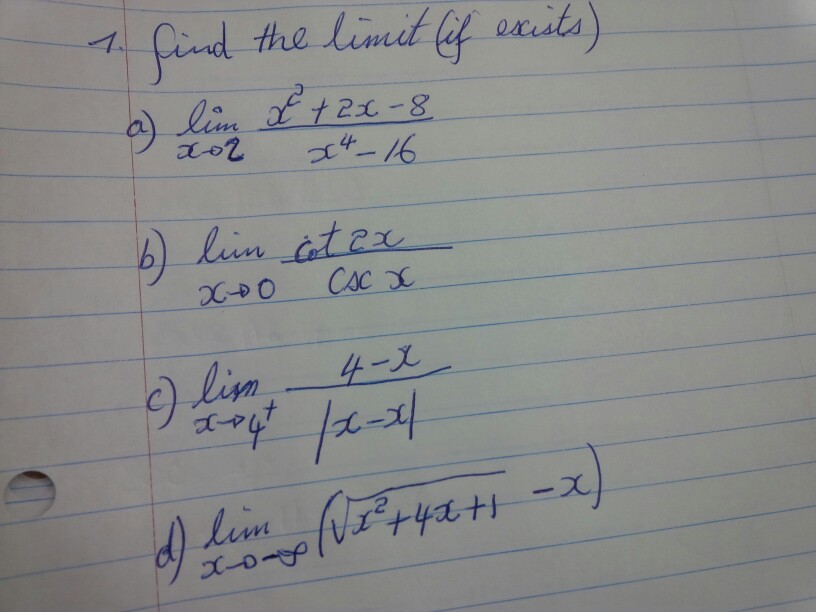 1. find the limit (if exists)
a) lim x→2 (x² + 2x - 8)/(x⁴ - 16)
b) lim x→0 (cot 2x)/(csc x)
c) lim x→4⁺ (4 - x)/|x - x|
d) lim x→-∞ (√(x² + 4x + 1) - x)